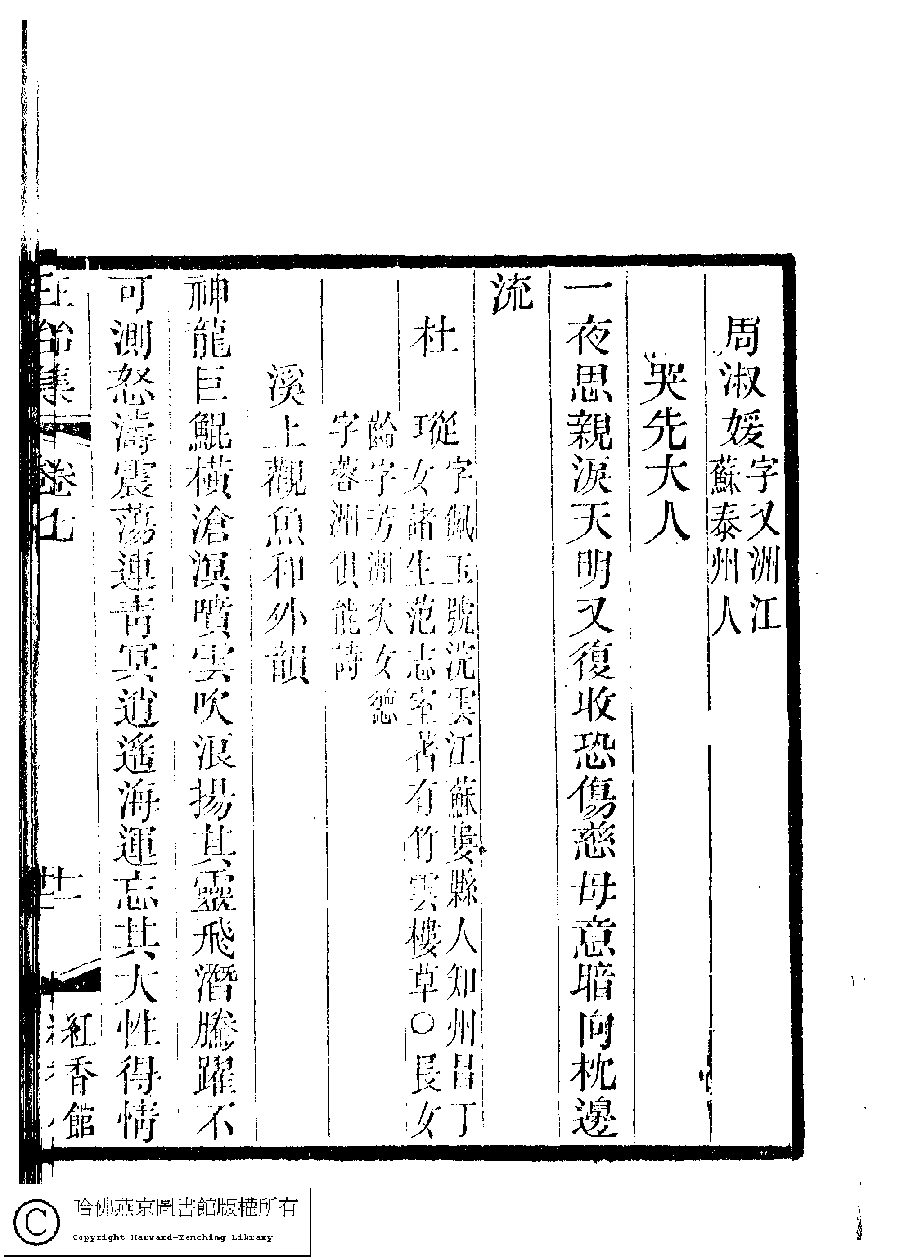 周淑媛字又洲江
蘇泰州人
哭先大人
一夜思親淚天明又復收恐傷慈母意暗向枕邊
流
杜
瑽字佩玉號浣雲江蘇婁縣人知州昌丁
女諸生范志室著有竹雲樓草○長女
齡字芳洲次女德
字蓉洲俱能詩
溪上觀魚和外韻
神龍巨鯤橫滄溟噴雲吹浪揚其靈飛潛騰躍不
可測怒濤震蕩連青冥逍遙海運忘其大性得情
玉台集 卷七 廿一 紅香館
哈佛燕京圖書館版權所有
Copyright Harvard-Yenching Library